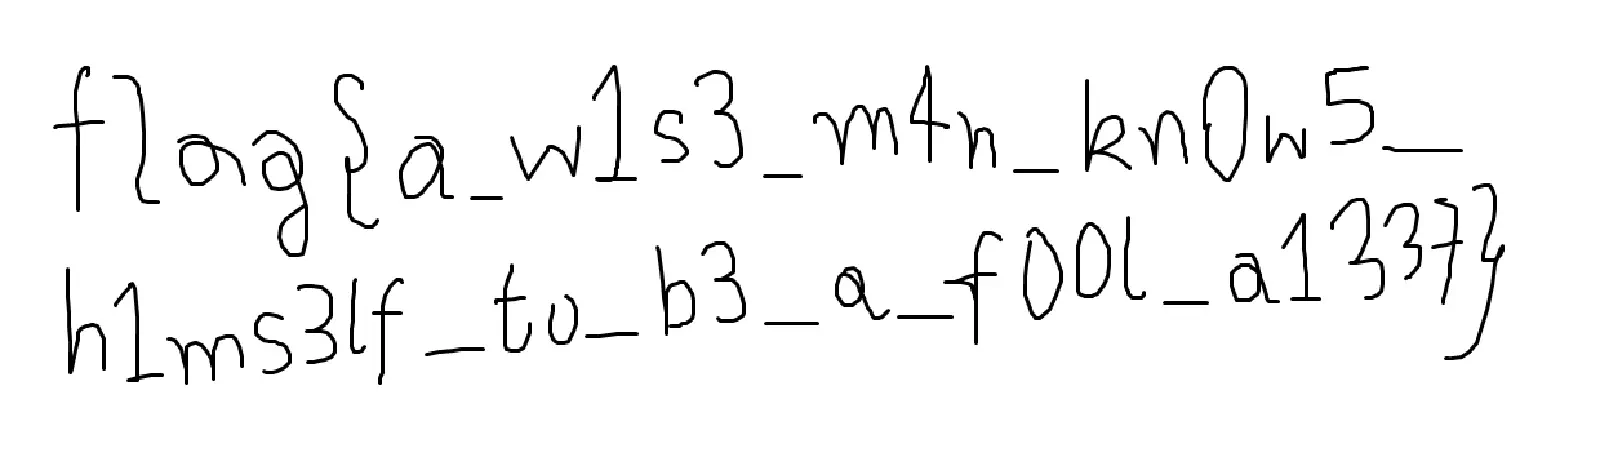 flag{a_w1s3_m4n_kn0w5_
h1ms3lf_to_b3_a_f00l_a1337}